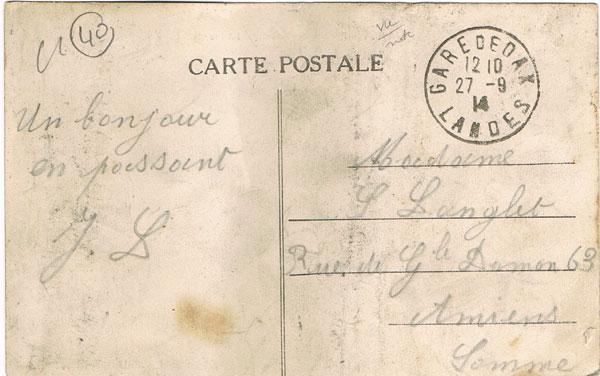 40
vu
CARTE POSTALE
GARE DE DAX
12 10
27 -9
14
LANDES
Un bonjour
en passant
J. L
Madame
S Langlet
Rue de Gle Damon 63
Amiens
Somme